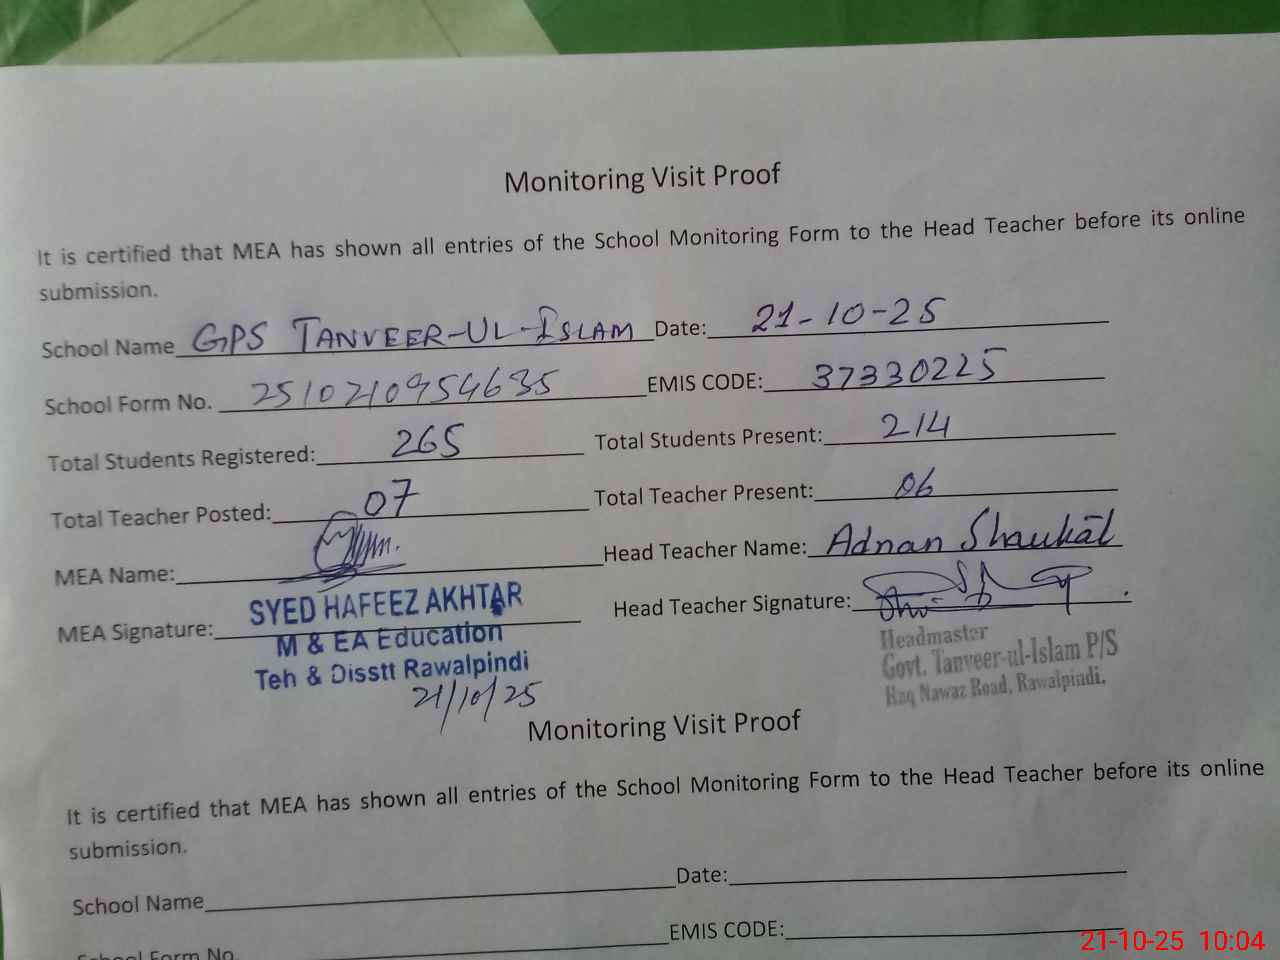 Monitoring Visit Proof
It is certified that MEA has shown all entries of the School Monitoring Form to the Head Teacher before its online
submission.
School Name GPS TANVEER-UL-ISLAM Date: 21-10-25
School Form No. 2510210954635 EMIS CODE: 37330225
Total Students Registered: 265 Total Students Present: 214
Total Teacher Posted: 07 Total Teacher Present: 06
MEA Name: Head Teacher Name: Adnan Shaukat
MEA Signature: SYED HAFEEZ AKHTAR Head Teacher Signature:
M & EA Education
Teh & Disstt Rawalpindi
21/10/25
Headmaster
Govt. Tanveer-ul-Islam P/S
Haq Nawaz Road, Rawalpindi.
Monitoring Visit Proof
It is certified that MEA has shown all entries of the School Monitoring Form to the Head Teacher before its online
submission.
School Name Date:
School Form No. EMIS CODE:
21-10-25 10:04